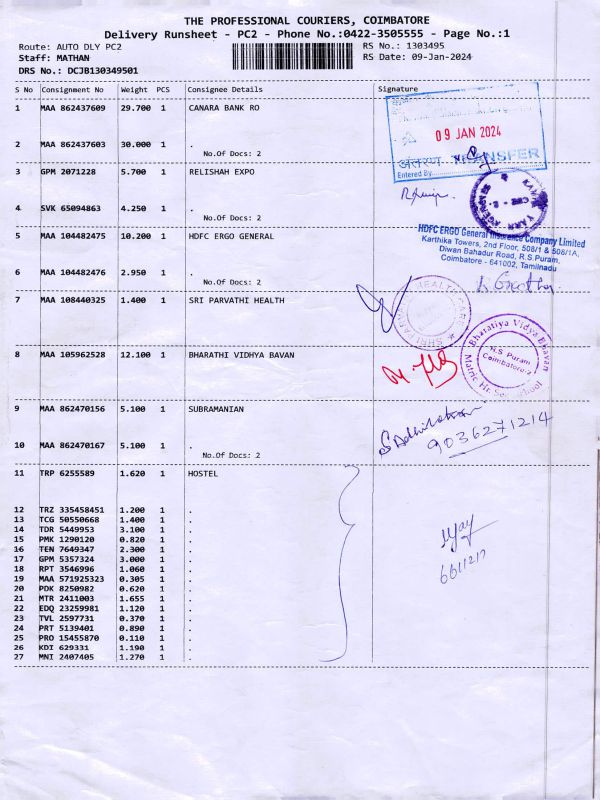 THE PROFESSIONAL COURIERS, COIMBATORE
Delivery Runsheet - PC2 - Phone No.:0422-3505555 - Page No.:1
Route: AUTO DLY PC2
RS No.: 1303495
Staff: MATHAN
RS Date: 09-Jan-2024
DRS No.: DCJB130349501
S No Consignment No Weight PCS Consignee Details Signature
1 MAA 862437609 29.700 1 CANARA BANK RO
09 JAN 2024
2 MAA 862437603 30.000 1 .
No.Of Docs: 2
अंतरण TRANSFER
Entered By
3 GPM 2071228 5.700 1 RELISHAH EXPO
4 SVK 65094863 4.250 1 .
No.Of Docs: 2
5 MAA 104482475 10.200 1 HDFC ERGO GENERAL
HDFC ERGO General Insurance Company Limited
Karthika Towers, 2nd Floor, 508/1 & 508/1A,
Diwan Bahadur Road, R.S.Puram,
Coimbatore - 641002, Tamilnadu
6 MAA 104482476 2.950 1 .
No.Of Docs: 2
7 MAA 108440325 1.400 1 SRI PARVATHI HEALTH
8 MAA 105962528 12.100 1 BHARATHI VIDHYA BAVAN
Bharatiya Vidya Bhavan
R.S. Puram
Coimbatore-2
Matric Hr. Sec. School
9 MAA 862470156 5.100 1 SUBRAMANIAN
9036271214
10 MAA 862470167 5.100 1 .
No.Of Docs: 2
11 TRP 6255589 1.620 1 HOSTEL
12 TRZ 335458451 1.200 1 .
13 TCG 50550668 1.400 1 .
14 TDR 5449953 3.100 1 .
15 PMK 1290120 0.820 1 .
16 TEN 7649347 2.300 1 .
17 GPM 5357324 3.000 1 .
18 RPT 3546996 1.060 1 .
19 MAA 571925323 0.305 1 .
20 PDK 8250982 0.620 1 .
21 MTR 2411003 1.655 1 .
22 EDQ 23259981 1.120 1 .
23 TVL 2597731 0.370 1 .
24 PRT 5139401 0.890 1 .
25 PRO 15455870 0.110 1 .
26 KDI 629331 1.190 1 .
27 MNI 2407405 1.270 1 .